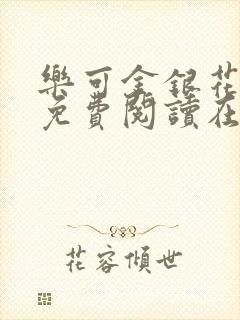 樂可金銀花
免費閱讀在
花容傾世